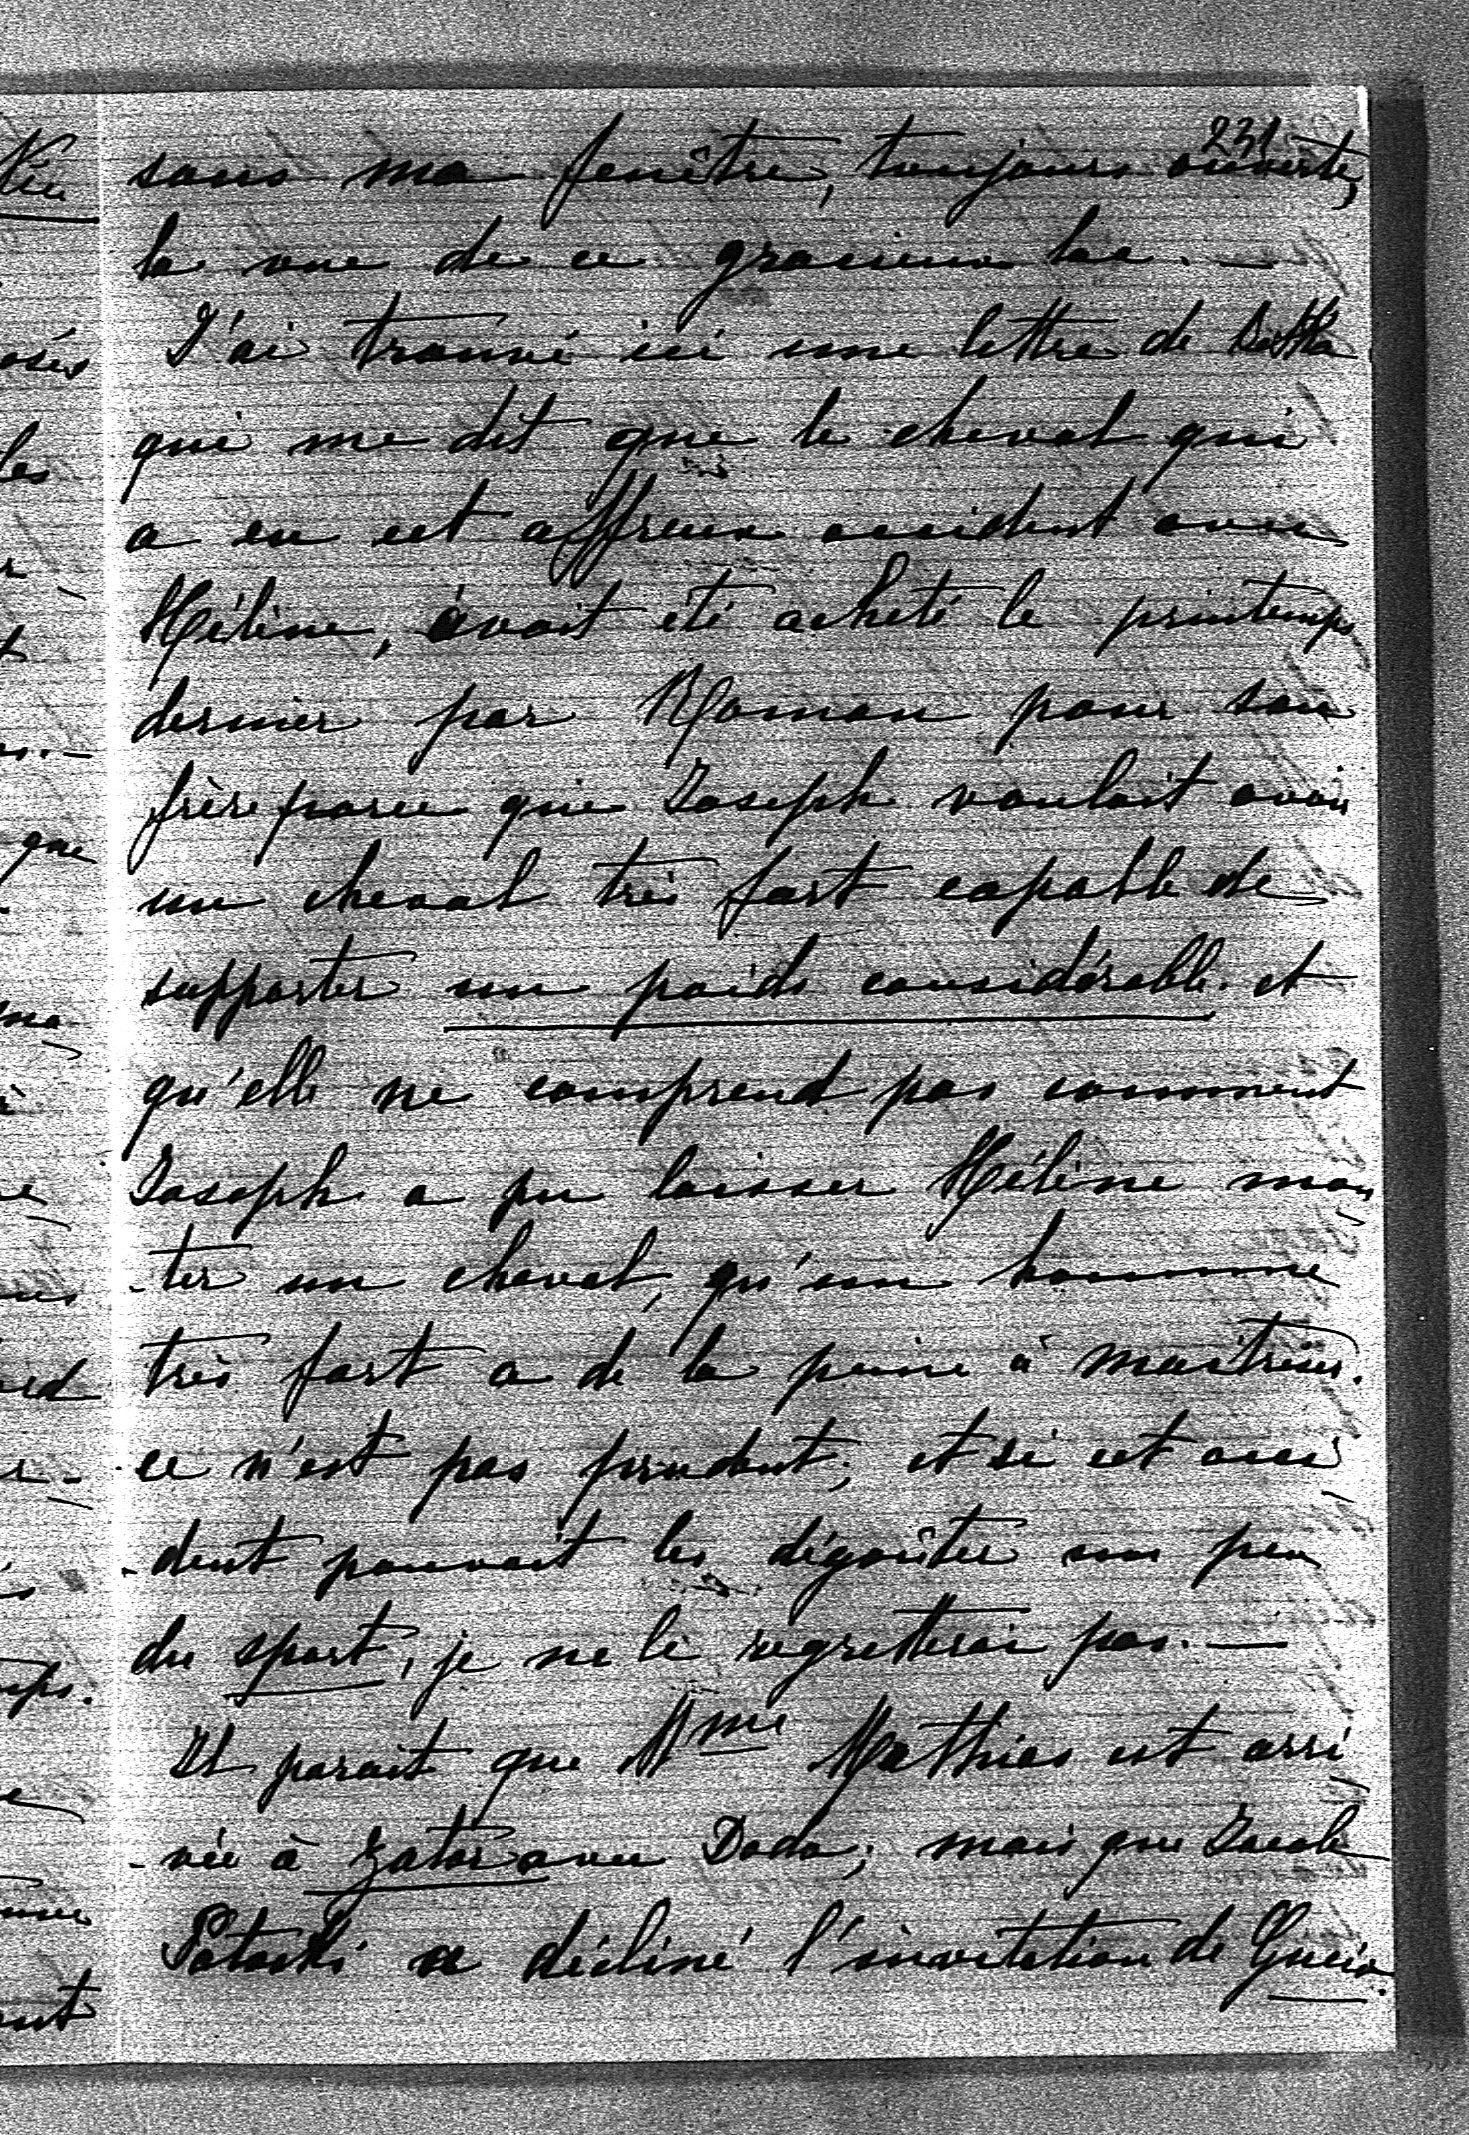 231
sous ma fenêtre, toujours ouverte,
la vue de ce gracieux lac. —
J'ai trouvé ici une lettre de
qui me dit que le cheval qui
a eu cet affreux accident avec
Hélène, avait été acheté le printemps
dernier par Roman pour son
frère parce que Joseph voulait avoir
un cheval très fort capable de
supporter un poids considérable. et
qu'elle ne comprend pas comment
Joseph a pu laisser Hélène mon
-ter un cheval, qu'un homme
très fort a de la peine à maîtriser.
ce n'est pas prudent; et si cet acci
-dent pouvait les dégoûter un peu
du sport, je ne le regretterai pas. —
Il parait que Mme Mathias est arri
-vée à Zator avec Doda; mais que
Potocki a décliné l'invitation de Gucio.